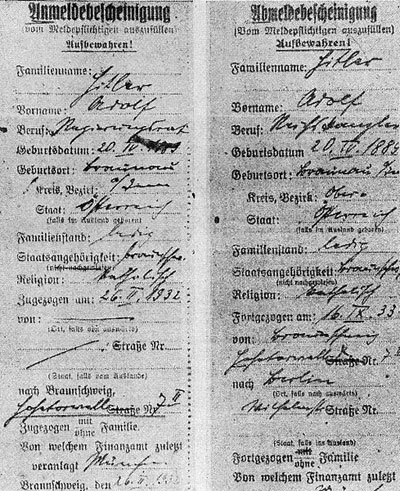 Anmeldebescheinigung
(vom Meldepflichtigen auszufüllen)
Aufbewahren!
Familienname:
Hitler
Vorname: Adolf
Beruf: Regierungsrat
Geburtsdatum: 20. IV. 1889
Geburtsort: Braunau
Kreis, Bezirk: a/Inn
Staat: Österreich
(falls im Ausland geboren)
Familienstand: ledig
Staatsangehörigkeit: braunschw.
(nicht nachgewiesen)
Religion: katholisch
Zugezogen am: 26. II. 1932
von:
(Ort, falls von auswärts)
Straße Nr.
(Staat, falls vom Auslande)
nach Braunschweig,
Hohetorwall Straße Nr. 7 II
Zugezogen mit
ohne Familie.
Von welchem Finanzamt zuletzt
veranlagt München
Braunschweig, den 26. II. 1932
Abmeldebescheinigung
(Vom Meldepflichtigen auszufüllen)
Aufbewahren!
Familienname: Hitler
Vorname: Adolf
Beruf: Reichskanzler
Geburtsdatum 20. IV. 1889
Geburtsort: Braunau
Kreis, Bezirk: Ober
Staat: Österreich
(falls im Ausland geboren)
Familienstand: ledig
Staatsangehörigkeit: braunschw.
(nicht nachgewiesen)
Religion: katholisch
Fortgezogen am: 16. IX. 33
von: Braunschweig
Hohetorwall Straße Nr. 7
nach Berlin
(Ort, falls nach auswärts)
Wilhelmst. Straße Nr.
(Staat, falls ins Ausland)
Fortgezogen mit
ohne Familie
Von welchem Finanzamt zuletzt